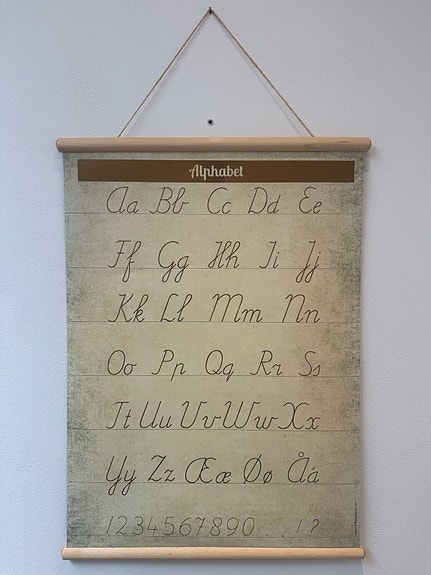 Alphabet
Aa Bb Cc Dd Ee
Ff Gg Hh Ii Jj
Kk Ll Mm Nn
Oo Pp Qq Rr Ss
Tt Uu Vv Ww Xx
Yy Zz Ææ Øø Åå
1234567890 . , ! ?